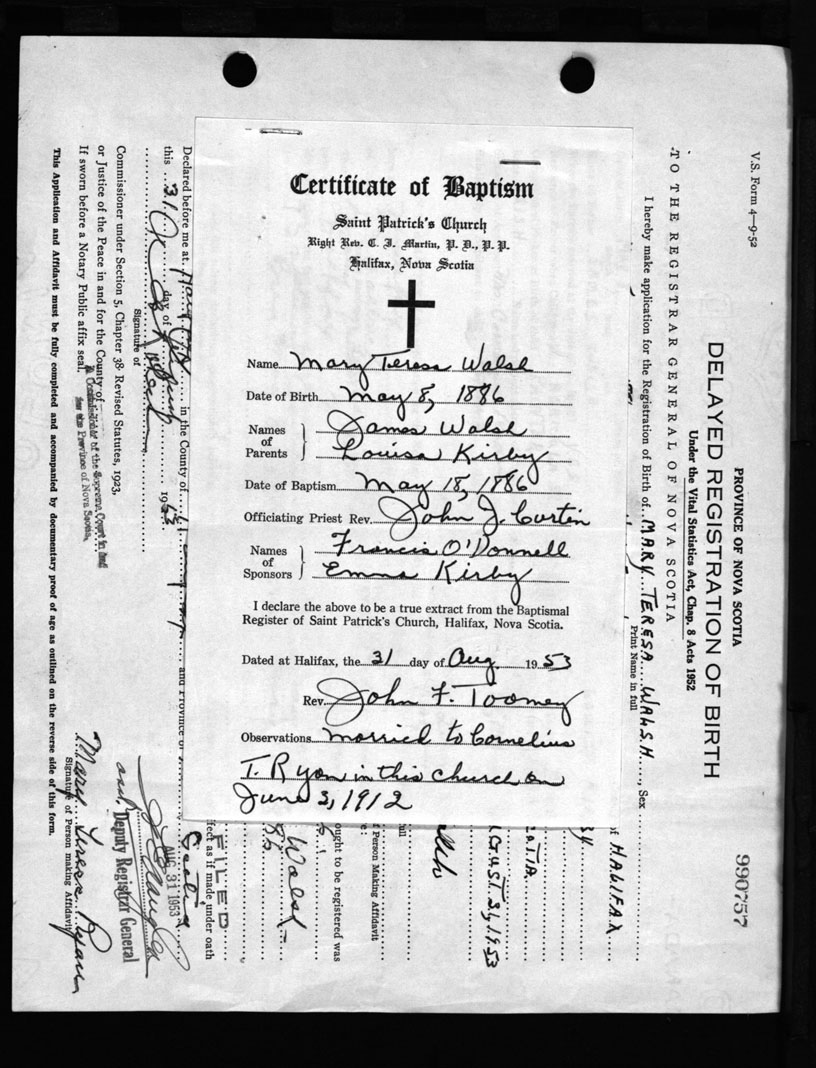 Certificate of Baptism
Saint Patrick's Church
Right Rev. C. J. Martin, P. D., P. P.
Halifax, Nova Scotia
Name Mary Teresa Walsh
Date of Birth May 8, 1886
Names of Parents } James Walsh
Louisa Kirby
Date of Baptism May 18, 1886
Officiating Priest Rev. John J. Curtin
Names of Sponsors } Francis O'Donnell
Emma Kirby
I declare the above to be a true extract from the Baptismal
Register of Saint Patrick's Church, Halifax, Nova Scotia.
Dated at Halifax, the 31 day of Aug 1953
Rev. John F. Toomey
Observations Married to Cornelius
T. Ryan in this church on
June 3, 1912
V.S. Form 4—9-52
990757
PROVINCE OF NOVA SCOTIA
DELAYED REGISTRATION OF BIRTH
Under the Vital Statistics Act, Chap. 8 Acts 1952
TO THE REGISTRAR GENERAL OF NOVA SCOTIA
I hereby make application for the Registration of Birth of MARY TERESA WALSH, Sex
Print Name in full
of HALIFAX
AUGUST 31, 1953
of Person Making Affidavit
ought to be registered was
Walsh
ffect as if made under oath
FILED
AUG 31 1953
Deputy Registrar General
Declared before me at in the County of
and Province of
this 31 day of 1953
Signature of
Commissioner under Section 5, Chapter 38 Revised Statutes, 1923,
or Justice of the Peace in and for the County of
A Commissioner of the Supreme Court in and
for the Province of Nova Scotia
If sworn before a Notary Public affix seal.
Mary Teresa Ryan
Signature of Person making Affidavit
This Application and Affidavit must be fully completed and accompanied by documentary proof of age as outlined on the reverse side of this form.